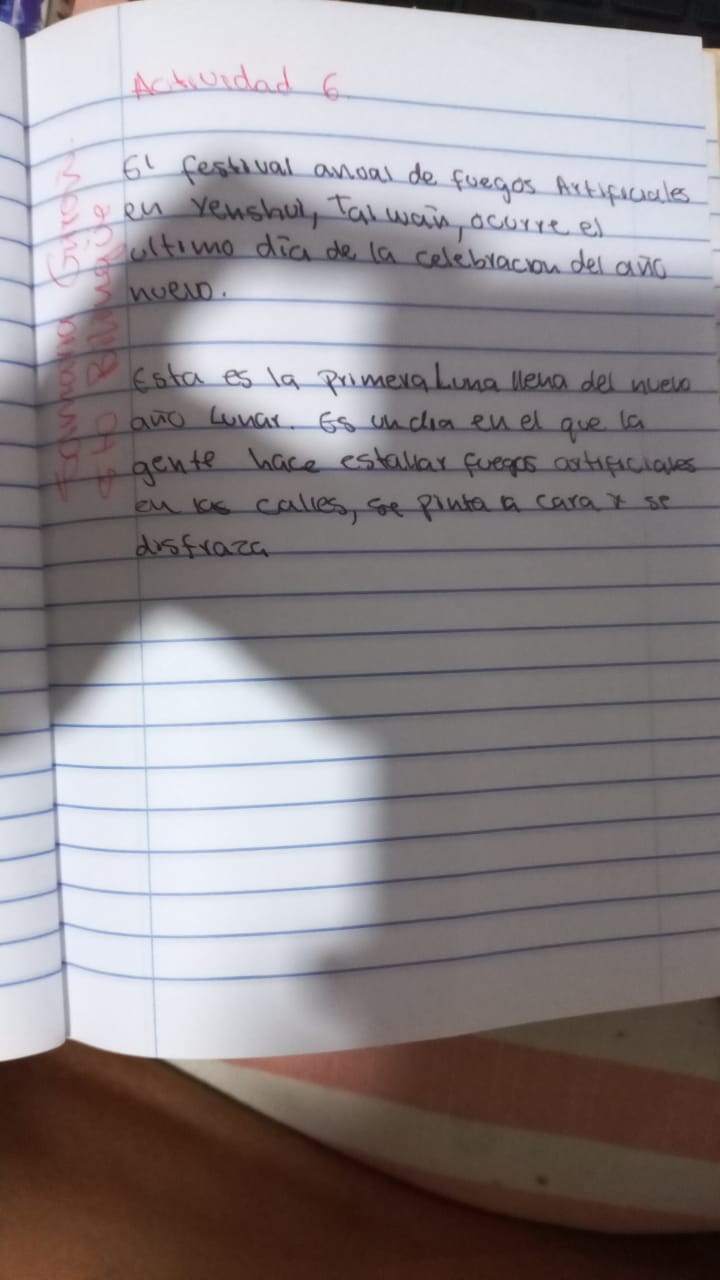 Actividad 6.
El festival anual de fuegos Artificiales
en Yenshui, Taiwain, ocurre el
ultimo día de la celebracion del año
nuevo.
Esta es la primera Luna llena del nuevo
año Lunar. Es un dia en el que la
gente hace estallar fuegos artificiales
en las calles, se pinta a cara y se
disfraza
6to Bilingüe